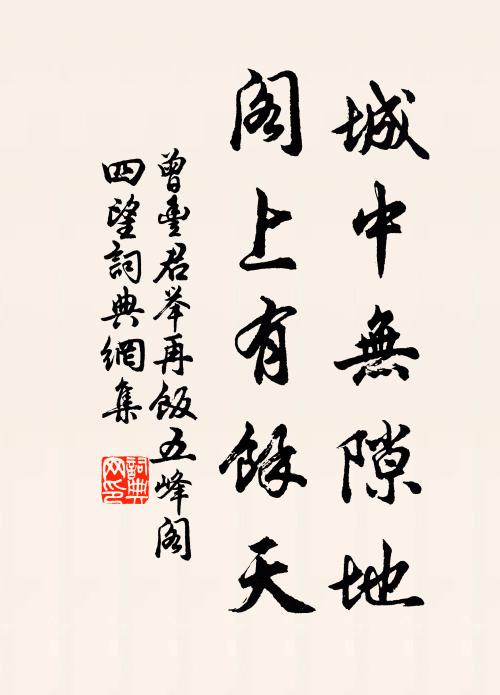 城中無隙地
閣上有餘天
曾豊君举再飯五峰阁
四望詞典網集
詞典網印